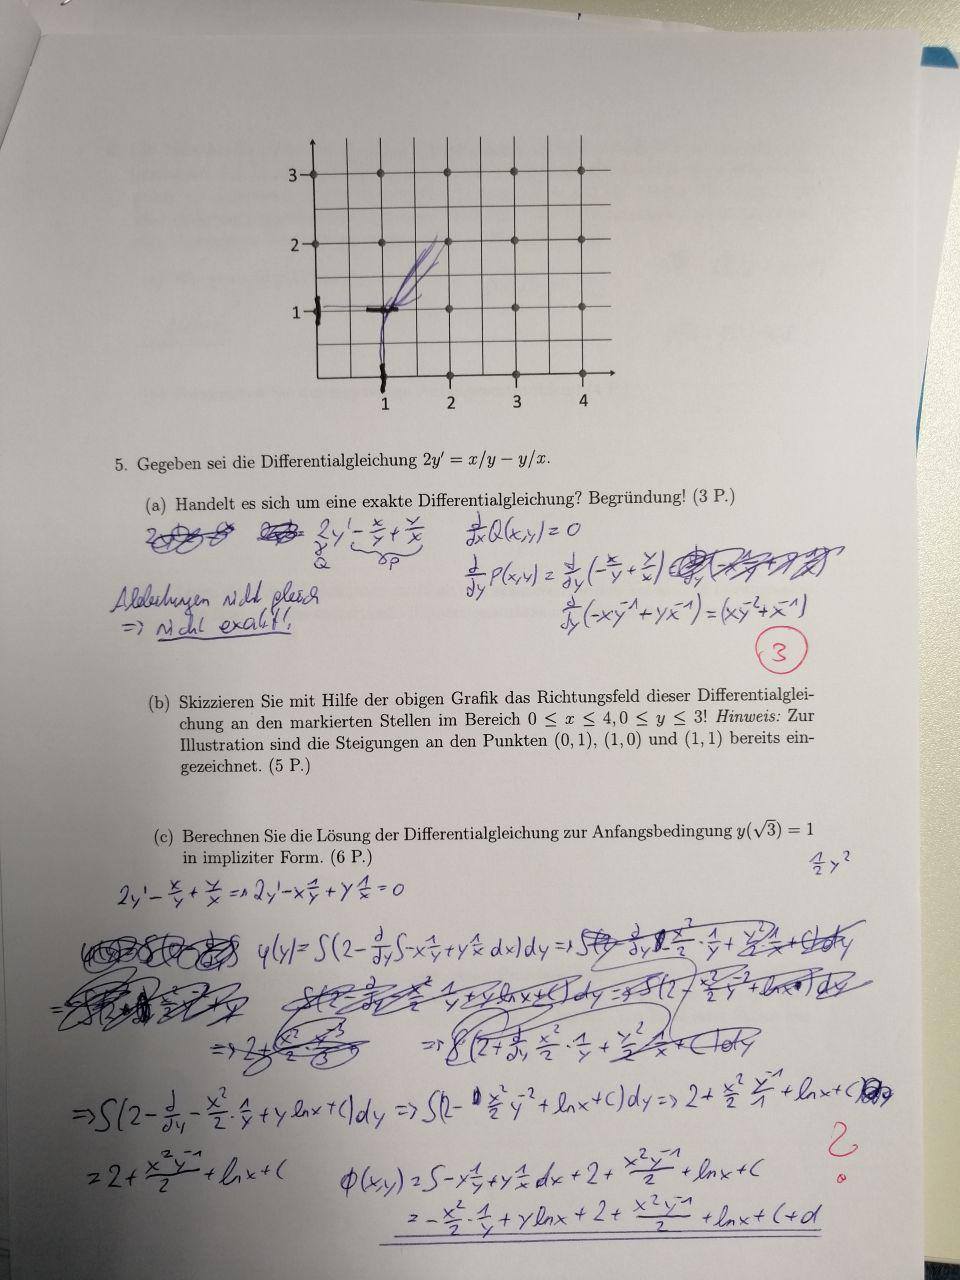 3
2
1
1 2 3 4
5. Gegeben sei die Differentialgleichung 2y′ = x/y − y/x.
(a) Handelt es sich um eine exakte Differentialgleichung? Begründung! (3 P.)
2y' - x/y + y/x
Q P
d/dx Q(x,y) = 0
d/dy P(x,y) = d/dy (-x/y + y/x) =
d/dy (-xy^-1 + yx^-1) = (xy^-2 + x^-1)
Ableitungen nicht gleich
=> nicht exakt!
3
(b) Skizzieren Sie mit Hilfe der obigen Grafik das Richtungsfeld dieser Differentialglei-
chung an den markierten Stellen im Bereich 0 ≤ x ≤ 4, 0 ≤ y ≤ 3! Hinweis: Zur
Illustration sind die Steigungen an den Punkten (0, 1), (1, 0) und (1, 1) bereits ein-
gezeichnet. (5 P.)
(c) Berechnen Sie die Lösung der Differentialgleichung zur Anfangsbedingung y(√3) = 1
in impliziter Form. (6 P.)
1/2 y²
2y' - x/y + y/x => 2y' - x 1/y + y 1/x = 0
φ(y) = ∫(2 - d/dy ∫ -x 1/y + y 1/x dx) dy =>
=> ∫(2 - d/dy - x²/2 · 1/y + y ln x + C) dy => ∫(2 - x²/2 y^-2 + ln x + C) dy => 2 + x²/2 y^-1/1 + ln x + C
= 2 + x²y^-1/2 + ln x + C
Φ(x,y) = ∫ -x 1/y + y 1/x dx + 2 + x²y^-1/2 + ln x + C
= -x²/2 · 1/y + y ln x + 2 + x²y^-1/2 + ln x + C + d
?